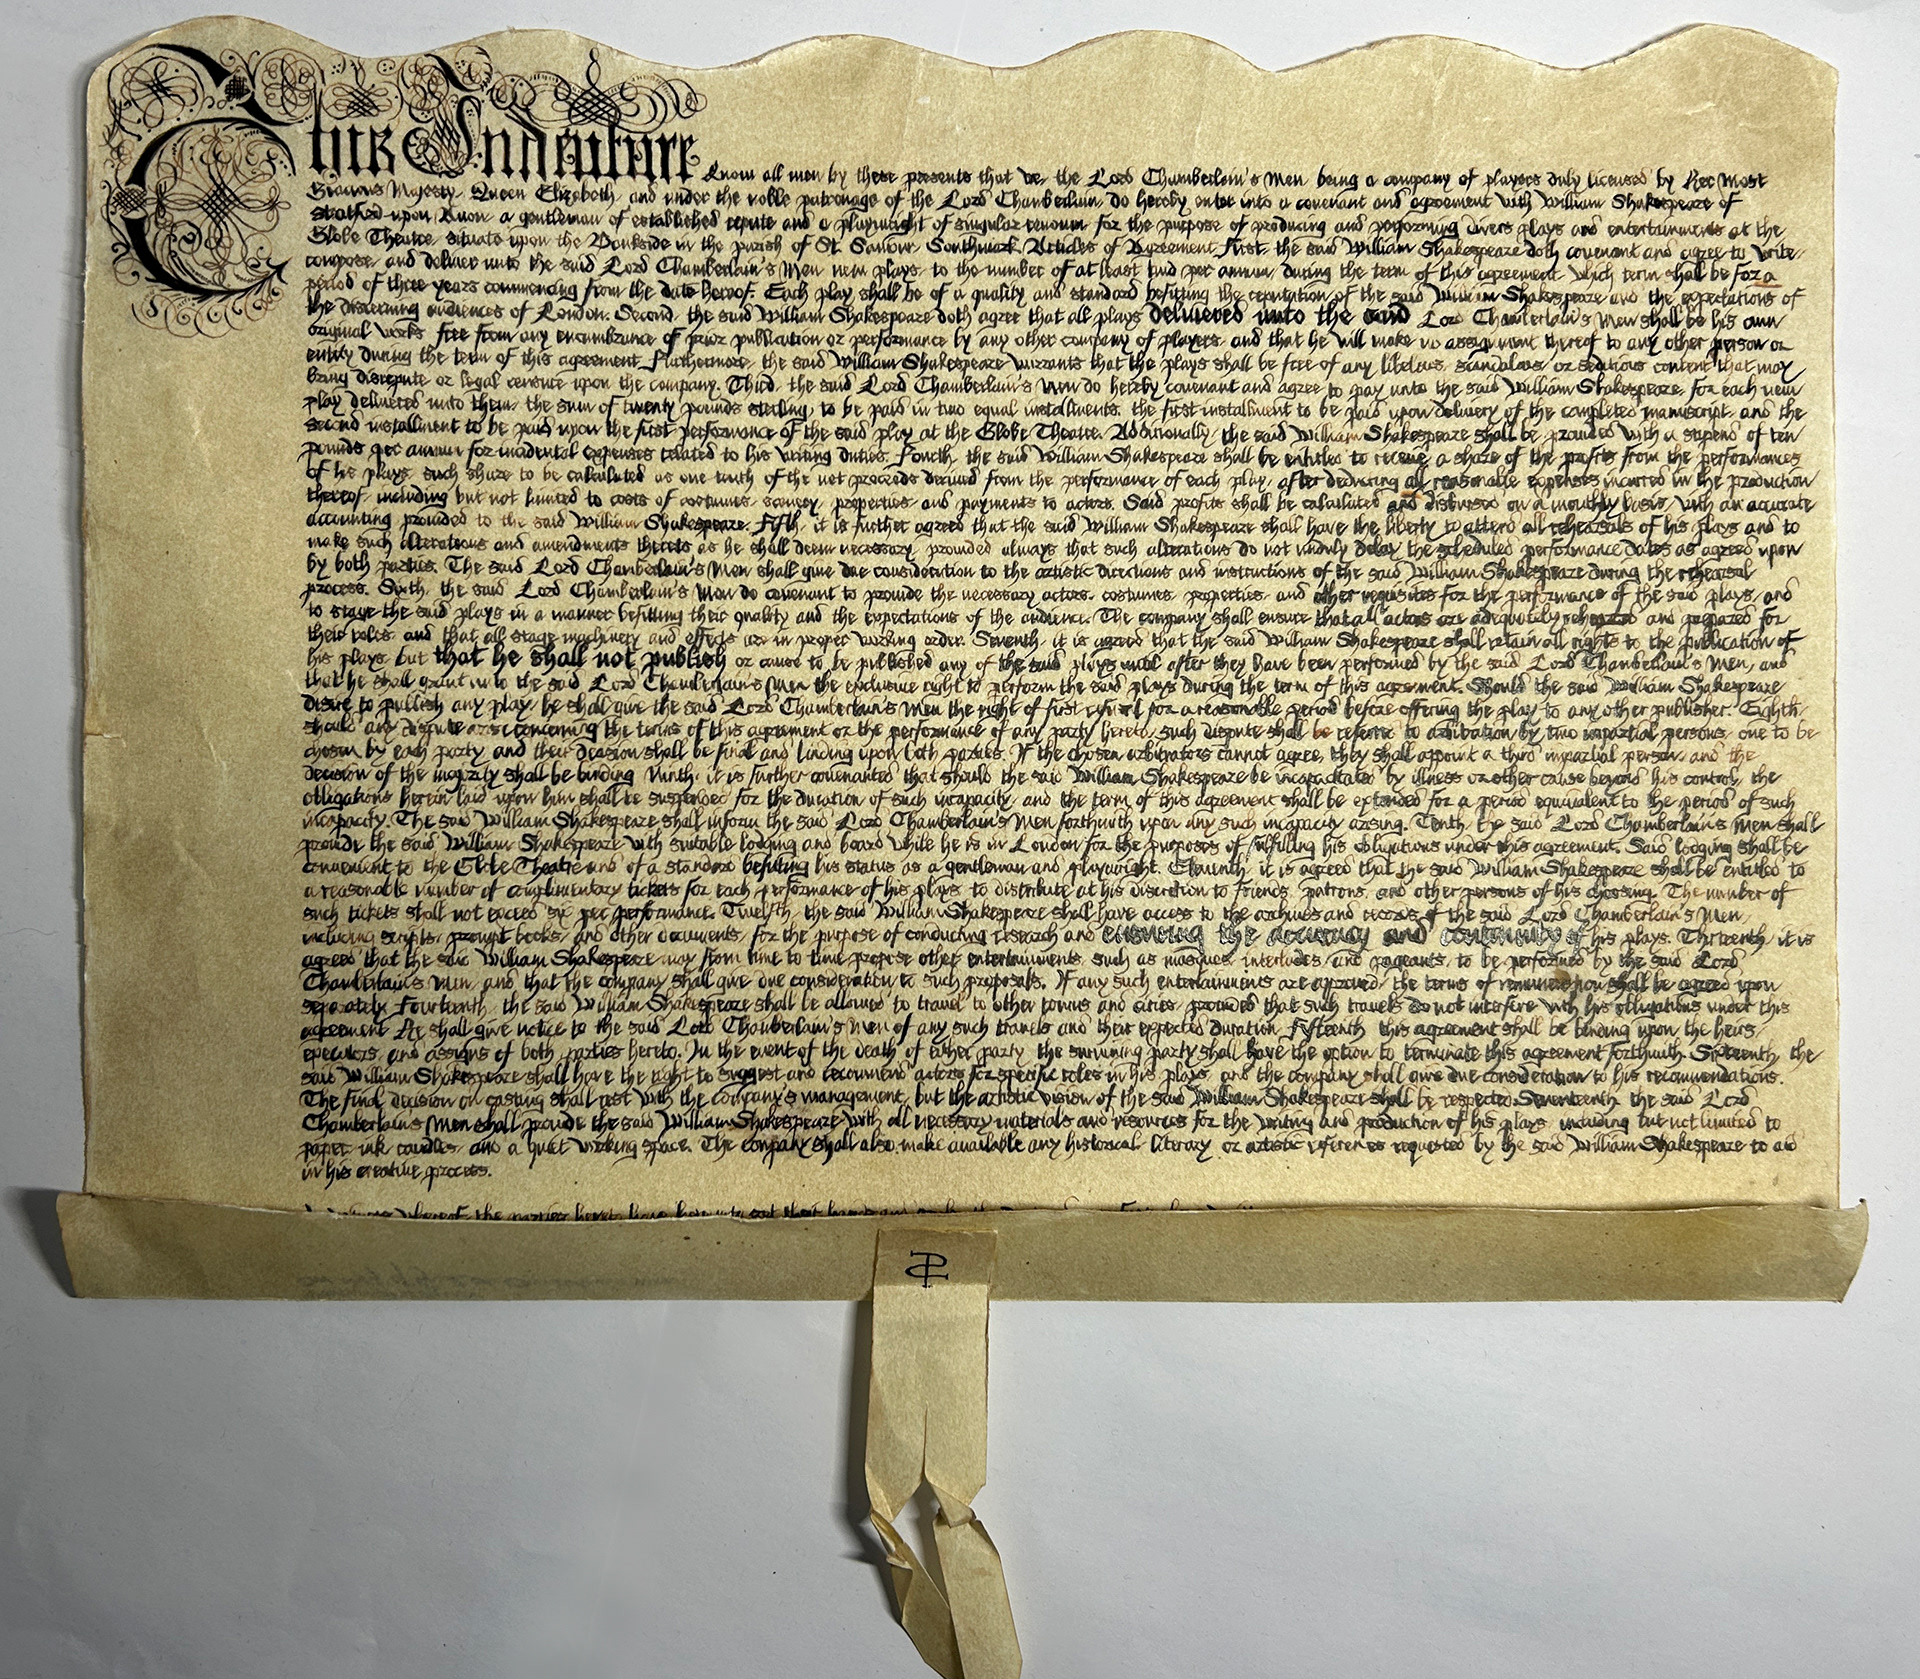 This Indenture Know all men by these presents that we, the Lord Chamberlain's Men being a company of players duly licensed by Her Most
Gracious Majesty, Queen Elizabeth, and under the noble patronage of the Lord Chamberlain, do hereby enter into a covenant and agreement with William Shakespeare of
Stratford-upon-Avon a gentleman of established repute and a playwright of singular renown for the purpose of producing and performing divers plays and entertainments at the
Globe Theatre, situate upon the Bankside in the parish of St. Saviour Southwark. Articles of Agreement. First, the said William Shakespeare doth covenant and agree to write,
compose, and deliver unto the said Lord Chamberlain's Men new plays, to the number of at least two per annum, during the term of this agreement which term shall be for a
period of three years commencing from the date hereof. Each play shall be of a quality and standard befitting the reputation of the said William Shakespeare and the expectations of
the discerning audiences of London. Second, the said William Shakespeare doth agree that all plays delivered unto the said Lord Chamberlain's Men shall be his own
original works free from any encumbrance of prior publication or performance by any other company of players, and that he will make no assignment thereof to any other person or
entity during the term of this agreement. Furthermore, the said William Shakespeare warrants that the plays shall be free of any libelous, scandalous, or seditious content that may
bring disrepute or legal censure upon the company. Third, the said Lord Chamberlain's Men do hereby covenant and agree to pay unto the said William Shakespeare, for each new
play delivered unto them, the sum of twenty pounds sterling, to be paid in two equal installments, the first installment to be paid upon delivery of the completed manuscript, and the
second installment to be paid upon the first performance of the said play at the Globe Theatre. Additionally, the said William Shakespeare shall be provided with a stipend of ten
pounds per annum for incidental expenses related to his writing duties. Fourth, the said William Shakespeare shall be entitled to receive a share of the profits from the performances
of his plays, such share to be calculated as one tenth of the net proceeds derived from the performance of each play, after deducting all reasonable expenses incurred in the production
thereof, including but not limited to costs of costumes, scenery, properties, and payments to actors. Said profits shall be calculated and disbursed on a monthly basis, with an accurate
accounting provided to the said William Shakespeare. Fifth, it is further agreed that the said William Shakespeare shall have the liberty to attend all rehearsals of his plays and to
make such alterations and amendments thereto as he shall deem necessary, provided always that such alterations do not unduly delay the scheduled performance dates as agreed upon
by both parties. The said Lord Chamberlain's Men shall give due consideration to the artistic directions and instructions of the said William Shakespeare during the rehearsal
process. Sixth, the said Lord Chamberlain's Men do covenant to provide the necessary actors, costumes, properties, and other requisites for the performance of the said plays, and
to stage the said plays in a manner befitting their quality and the expectations of the audience. The company shall ensure that all actors are adequately rehearsed and prepared for
their roles, and that all stage machinery and effects are in proper working order. Seventh, it is agreed that the said William Shakespeare shall retain all rights to the publication of
his plays, but that he shall not publish or cause to be published any of the said plays until after they have been performed by the said Lord Chamberlain's Men, and
that he shall grant unto the said Lord Chamberlain's Men the exclusive right to perform the said plays during the term of this agreement. Should the said William Shakespeare
desire to publish any play, he shall give the said Lord Chamberlain's Men the right of first refusal for a reasonable period before offering the play to any other publisher. Eighth,
should any dispute arise concerning the terms of this agreement or the performance of any party hereto, such dispute shall be referred to arbitration by two impartial persons, one to be
chosen by each party and their decision shall be final and binding upon both parties. If the chosen arbitrators cannot agree, they shall appoint a third impartial person, and the
decision of the majority shall be binding. Ninth, it is further covenanted that should the said William Shakespeare be incapacitated by illness or other cause beyond his control, the
obligations herein laid upon him shall be suspended for the duration of such incapacity, and the term of this agreement shall be extended for a period equivalent to the period of such
incapacity. The said William Shakespeare shall inform the said Lord Chamberlain's Men forthwith upon any such incapacity arising. Tenth, the said Lord Chamberlain's Men shall
provide the said William Shakespeare with suitable lodging and board while he is in London for the purposes of fulfilling his obligations under this agreement. Said lodging shall be
convenient to the Globe Theatre and of a standard befitting his status as a gentleman and playwright. Eleventh, it is agreed that the said William Shakespeare shall be entitled to
a reasonable number of complimentary tickets for each performance of his plays, to distribute at his discretion to friends, patrons, and other persons of his choosing. The number of
such tickets shall not exceed six per performance. Twelfth, the said William Shakespeare shall have access to the archives and records of the said Lord Chamberlain's Men,
including scripts, prompt books, and other documents, for the purpose of conducting research and ensuring the accuracy and continuity of his plays. Thirteenth, it is
agreed that the said William Shakespeare may from time to time propose other entertainments, such as masques, interludes, and pageants, to be performed by the said Lord
Chamberlain's Men, and that the company shall give due consideration to such proposals. If any such entertainments are approved, the terms of remuneration shall be agreed upon
separately. Fourteenth, the said William Shakespeare shall be allowed to travel to other towns and cities, provided that such travels do not interfere with his obligations under this
agreement. He shall give notice to the said Lord Chamberlain's Men of any such travels and their expected duration. Fifteenth this agreement shall be binding upon the heirs,
executors, and assigns of both parties hereto. In the event of the death of either party, the surviving party shall have the option to terminate this agreement forthwith. Sixteenth, the
said William Shakespeare shall have the right to suggest and recommend actors for specific roles in his plays, and the company shall give due consideration to his recommendations.
The final decision on casting shall rest with the company's management, but the artistic vision of the said William Shakespeare shall be respected. Seventeenth, the said Lord
Chamberlain's Men shall provide the said William Shakespeare with all necessary materials and resources for the writing and production of his plays, including but not limited to
paper, ink, candles, and a quiet working space. The company shall also make available any historical, literary, or artistic references requested by the said William Shakespeare to aid
in his creative process.